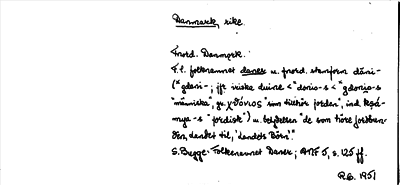 Danmark, rike.
Fnord. Danmǫrk.
F.l. folknamnet daner u. fnord. stamform dāni-
(*ǥdani- ; jfr iriska duine < *donio-s < *gdonio-s
"människa", gr. χθόνιος "som tillhör jorden", ind.
-s "jordisk") u. betydelsen "de som höra
till, landet til, 'landets Börn'."
S. Bugge: Folkenavnet Daner; ANF 5, s. 125 ff.
R.G. 1951